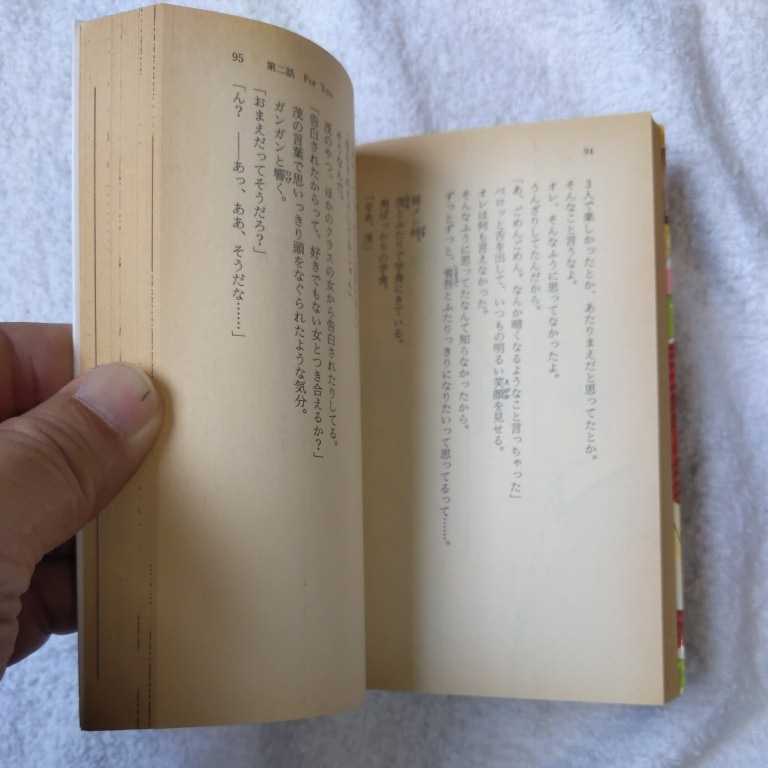 94
3人で楽しかったとか、あたりまえだと思ってたとか。
そんなこと言うなよ。
オレ、そんなふうに思ってなかったよ。
うんざりしてたんだから。
「あ、ごめんごめん。なんか暗くなるようなこと言っちゃった」
ペロッと舌を出して、いつもの明るい笑顔を見せる。
オレは何も言えなかった。
そんなふうに思ってたなんて知らなかったから。
ずっとずっと、とふたりっきりになりたいって思ってるって……。
とふたりで学食にきている。
「なあ、茂」
95 第二話 For You
そうなんだ。
茂のやつ、ほかのクラスの女から告白されたりしてる。
「告白されたからって、好きでもない女とつき合えるか？」
茂の言葉で思いっきり頭をなぐられたような気分。
ガンガンと響く。
「おまえだってそうだろ？」
「ん？　――あっ、ああ、そうだな……」